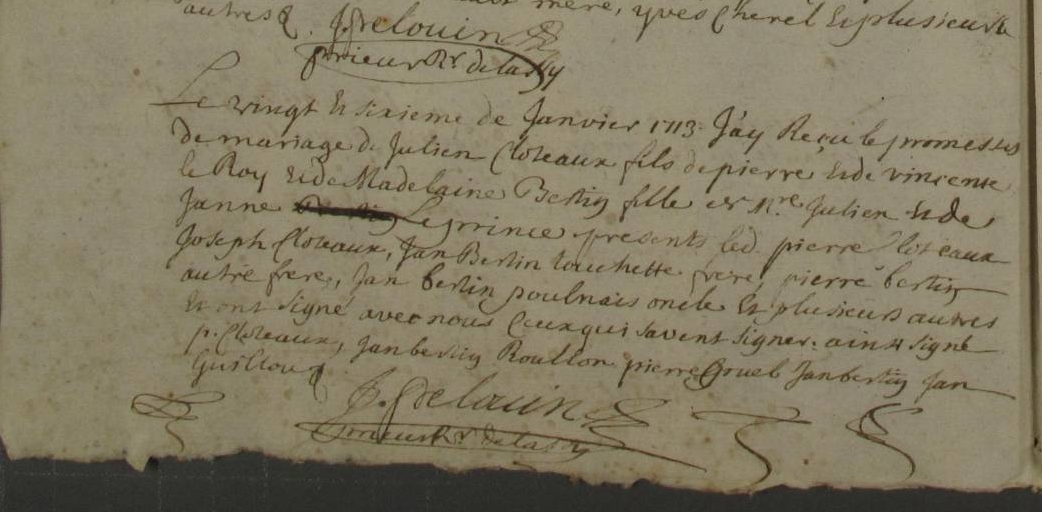 mere, yves Cherel & plusieurs
autres &. J. Delouin
prieur Rr. de lassy
Le vingt & sixieme de Janvier 1713. J'ay Reçu les promesses
de mariage de Julien Cloteaux fils de pierre & de vincente
le Roy & de Madelaine Bertin fille de Mre. Julien & de
Janne Leprince presents led. pierre Cloteaux
Joseph Cloteaux, Jan Bertin touchette frere, pierre bertin
autre frere, Jan bertin poulnais oncle & plusieurs autres
Et ont signé avec nous Ceux qui savent signer. ainsy signé
p. Cloteaux, Jan bertin Roullon pierre Gruel Jan bertin Jan
Guilloux
J. Delouin
prieur Rr. de lassy